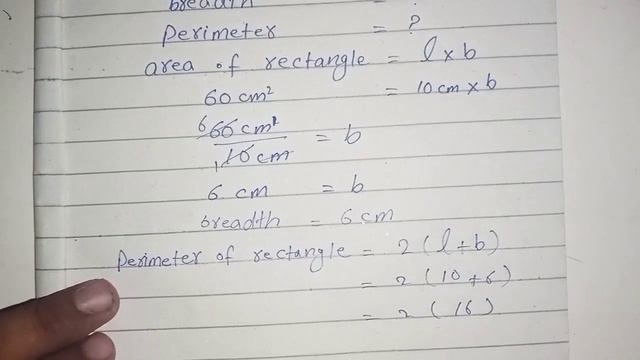 breadth =
Perimeter = ?
area of rectangle = l × b
60 cm² = 10 cm × b
6 60 cm² / 1 10 cm = b
6 cm = b
breadth = 6 cm
Perimeter of rectangle = 2 ( l + b )
= 2 ( 10 + 6 )
= 2 ( 16 )